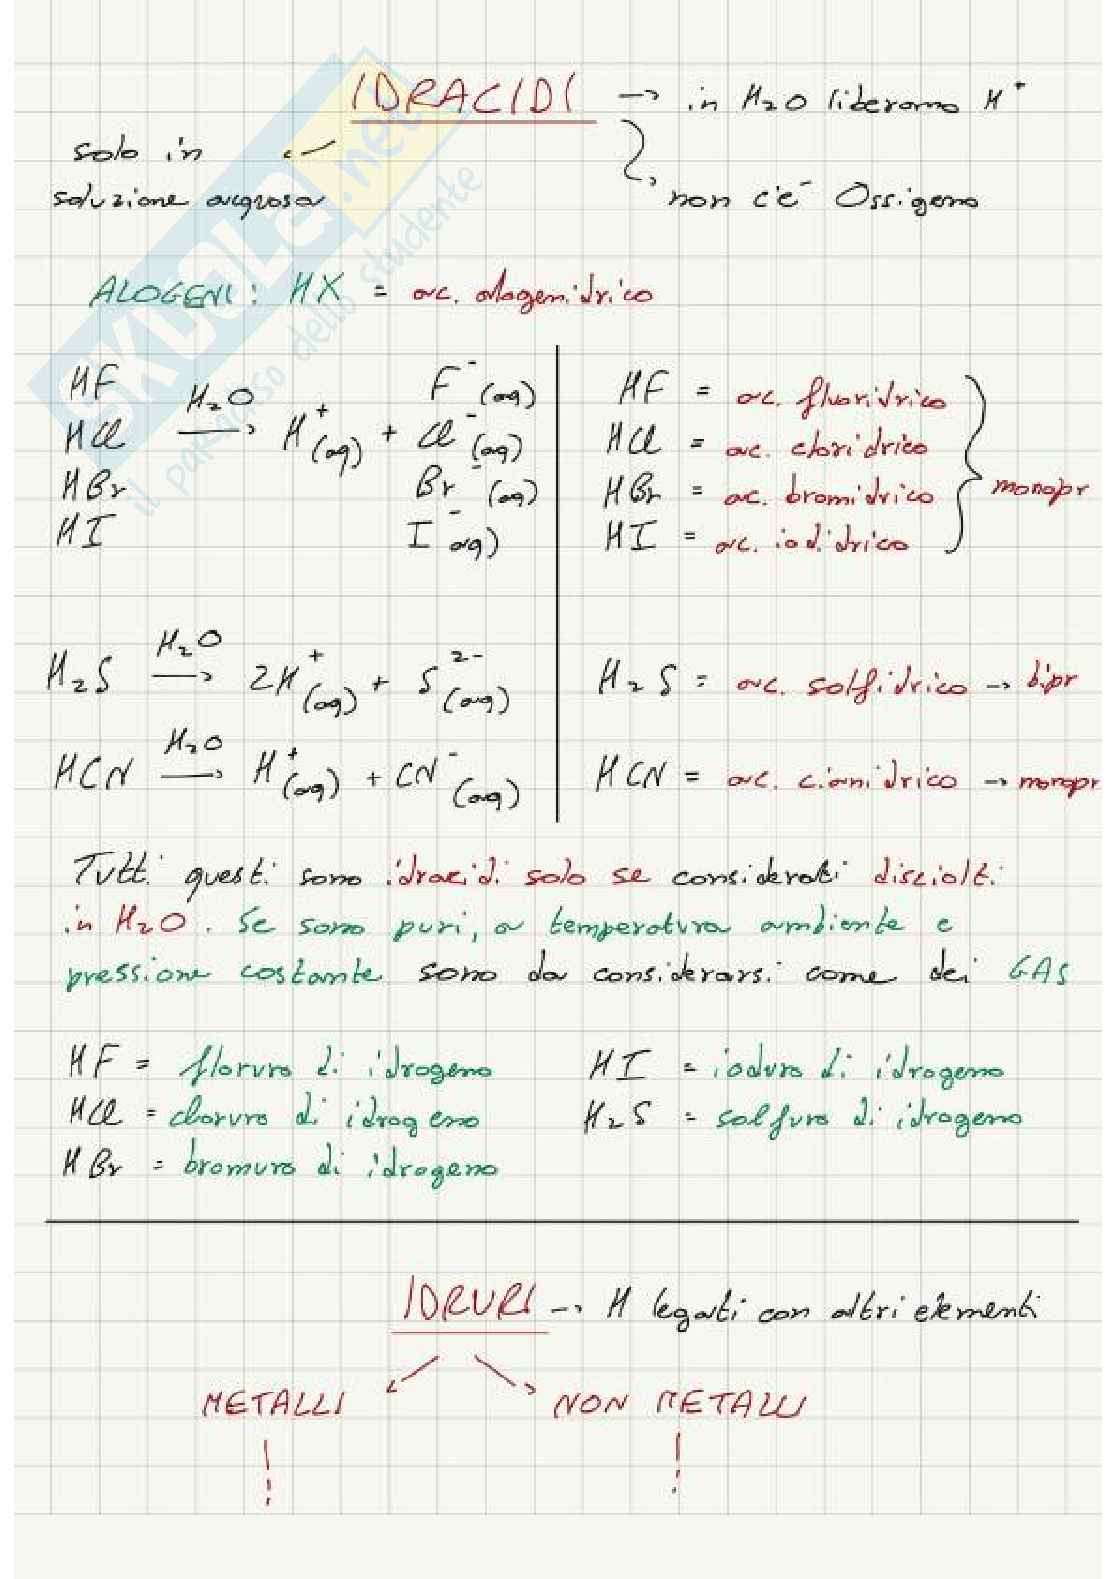 IDRACIDI → in H₂O liberano H⁺
solo in soluzione acquosa
non c'è Ossigeno
ALOGENI: HX = ac. alogenidrico
HF F⁻(aq)
HCl H₂O→ H⁺(aq) + Cl⁻(aq)
HBr Br⁻(aq)
HI I⁻aq)
HF = ac. fluoridrico
HCl = ac. cloridrico
HBr = ac. bromidrico
HI = ac. iodidrico
monopr
H₂S H₂O→ 2H⁺(aq) + S²⁻(aq)
H₂S = ac. solfidrico → bipr
HCN H₂O→ H⁺(aq) + CN⁻(aq)
HCN = ac. cianidrico → monopr
Tutti questi sono idracidi solo se considerati disciolti
in H₂O. Se sono puri, a temperatura ambiente e
pressione costante sono da considerarsi come dei GAS
HF = floruro di idrogeno
HI = ioduro di idrogeno
HCl = cloruro di idrogeno
H₂S = solfuro di idrogeno
HBr = bromuro di idrogeno
IDRURI → H legati con altri elementi
METALLI
NON METALLI
SKUOLA.net
il paradiso dello studente